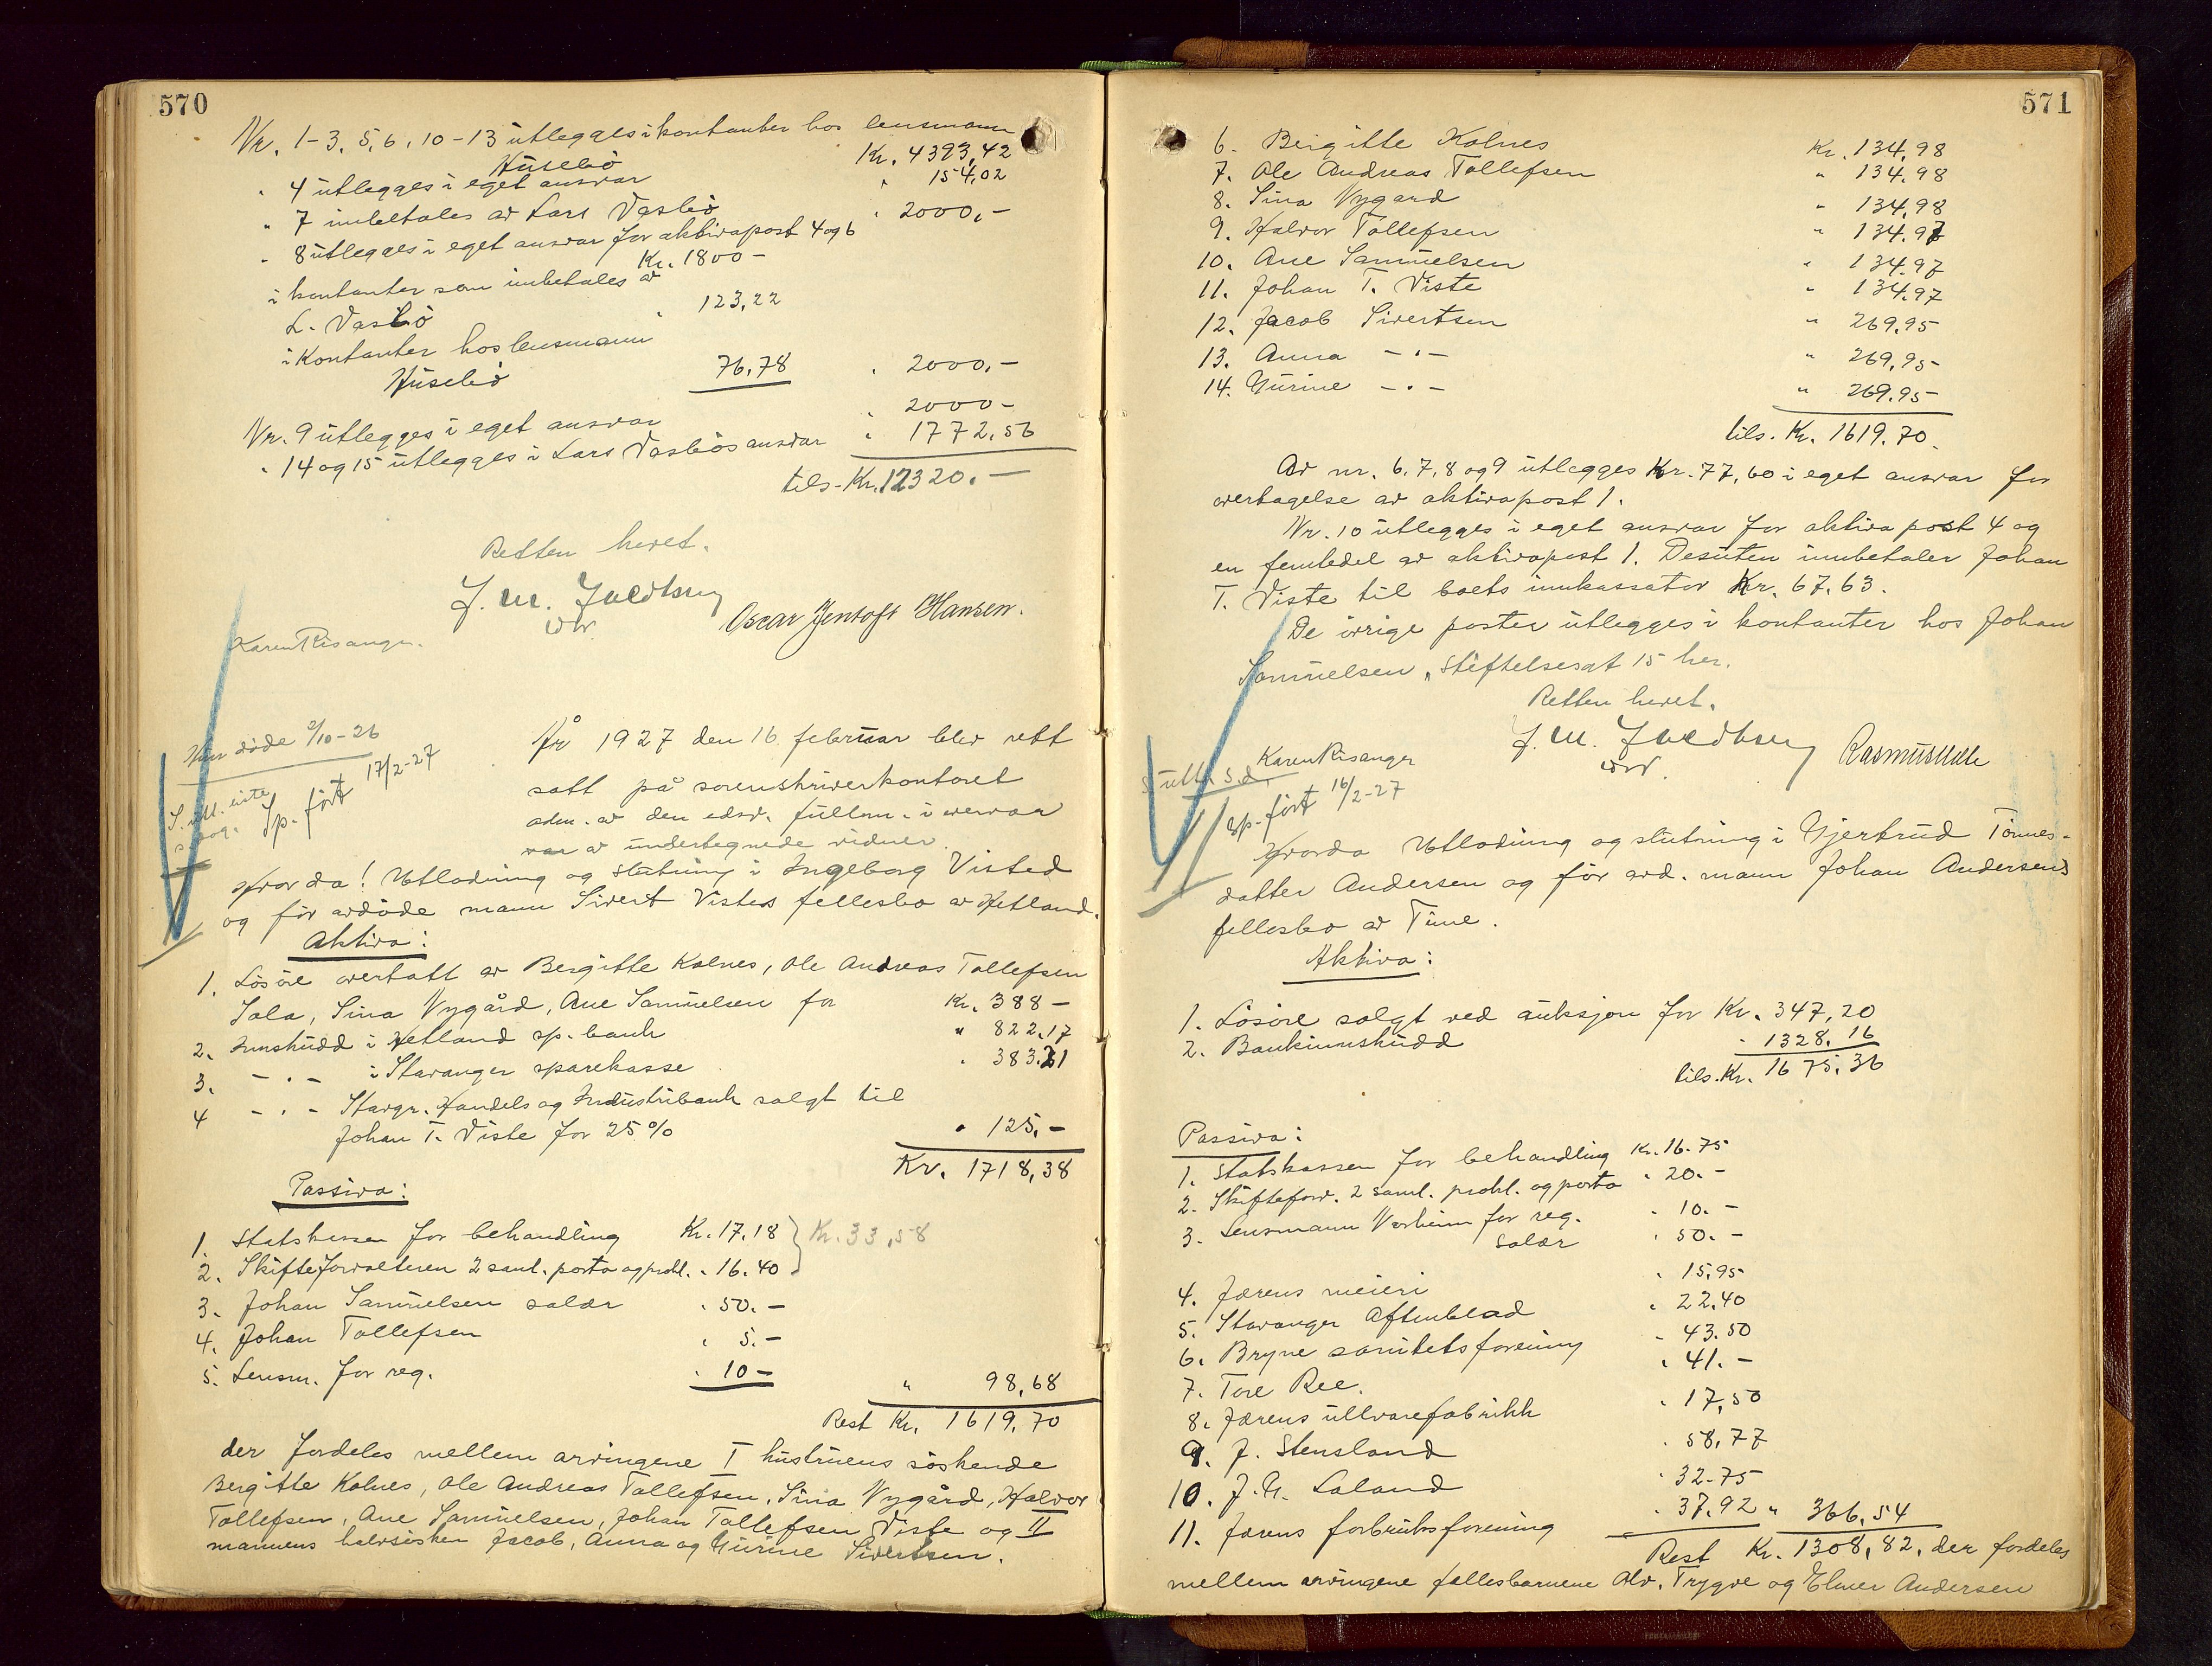 570
Nr. 1-3, 5, 6, 10-13 utlegges i kontanter hos lensmann
Husebö Kr. 4393,42
" 4 utlegges i eget ansvar " 154,02
" 7 innbetales av Lars Vasbö " 2000,-
" 8 utlegges i eget ansvar for aktivapost 4 og 6
Kr. 1800-
i kontanter som innbetales av
L. Vasbö " 123,22
i kontanter hos lensmann
Husebö 76,78 " 2000,-
Nr. 9 utlegges i eget ansvar " 2000-
" 14 og 15 utlegges i Lars Vasbös ansvar " 1772,56
tils. Kr. 12320.-
Retten hevet.
Oscar Jentoft Hansen.
Karen Risanger.
Hun döde 2/10-26
Sp. fört 17/2-27
År 1927 den 16 februar blev rett
satt på sorenskriverkontoret
adm. av den edsv. fullm. i nærvær
av undertegnede vidner.
Hvorda! Utlodning og slutning i Ingeborg Visted
og för avdöde mann Sivert Vistes fellesbo av Hetland.
Aktiva:
1. Lösöre overtatt av Bergitte Kolnes, Ole Andreas Tollefsen
Sola, Sina Nygård, Ane Samuelsen for Kr. 388-
2. Innskudd i Hetland sp. bank " 822.17
3. -"- i Stavanger sparekasse " 383.21
4 -"- Stavgr. Handels og Industribank salgt til
Johan T. Viste for 25% " 125,-
Kr. 1718,38
Passiva:
1. Statskassen for behandling Kr. 17,18 } Kr. 33,58
2. Skifteforvalteren 2 saml. porto og prokl. " 16.40
3. Johan Samuelsen salær " 50.-
4. Johan Tollefsen " 5.-
5. Lensm. for reg. " 10- " 98,68
Rest Kr. 1619,70
der fordeles mellem arvingene I hustruens söskende
Bergitte Kolnes, Ole Andreas Tollefsen, Sina Nygård, Halvor
Tollefsen, Ane Samuelsen, Johan Tollefsen Viste og II
mannens halvsösken Jacob, Anna og Gurine Sivertsen.
571
6. Bergitte Kolnes Kr. 134,98
7. Ole Andreas Tollefsen " 134.98
8. Sina Nygard " 134,98
9. Halvor Tollefsen " 134.97
10. Ane Samuelsen " 134.97
11. Johan T. Viste " 134.97
12. Jacob Sivertsen " 269.95
13. Anna -"- " 269,95-
14. Gurine -"- " 269.95-
tils. Kr. 1619.70.
Av nr. 6, 7, 8 og 9 utlegges Kr. 77,60 i eget ansvar for
overtagelse av aktivapost 1.
Nr. 10 utlegges i eget ansvar for aktiva post 4 og
en femtedel av aktivapost 1. Desuten innbetaler Johan
T. Viste til boets innkassator Kr. 67.63.
De övrige poster utlegges i kontanter hos Johan
Samuelsen, Stiftelsesgt 15 her.
Retten hevet.
Karen Risanger
Sp. fört 16/2-27
Hvorda Utlodning og slutning i Gjertrud Tönnes-
datter Andersen og för avd. mann Johan Andersens
fellesbo av Time.
Aktiva:
1. Lösöre salgt ved auksjon for Kr. 347,20
2. Bankinnskudd " 1328,16
tils. Kr. 1675,36
Passiva:
1. Statskassen for behandling Kr. 16.75
2. Skifteforv. 2 saml. prokl. og porto " 20.-
3. Lensmann Varheim for reg. " 10.-
Salær " 50.-
4. Jærens meieri " 15,95
5. Stavanger Aftenblad " 22.40
6. Bryne sanitetsforening " 43.50
7. Tore Ree. " 41.-
8. Jærens ullvarefabrikk " 17,50
9. J. Stensland " 58,77
10. J. G. Laland " 32.75
11. Jærens forbruksforening " 37,92 " 366,54
Rest Kr. 1308,82, der fordeles
mellem arvingene fellesbarnene Olv. Trygve og Elmer Andersen